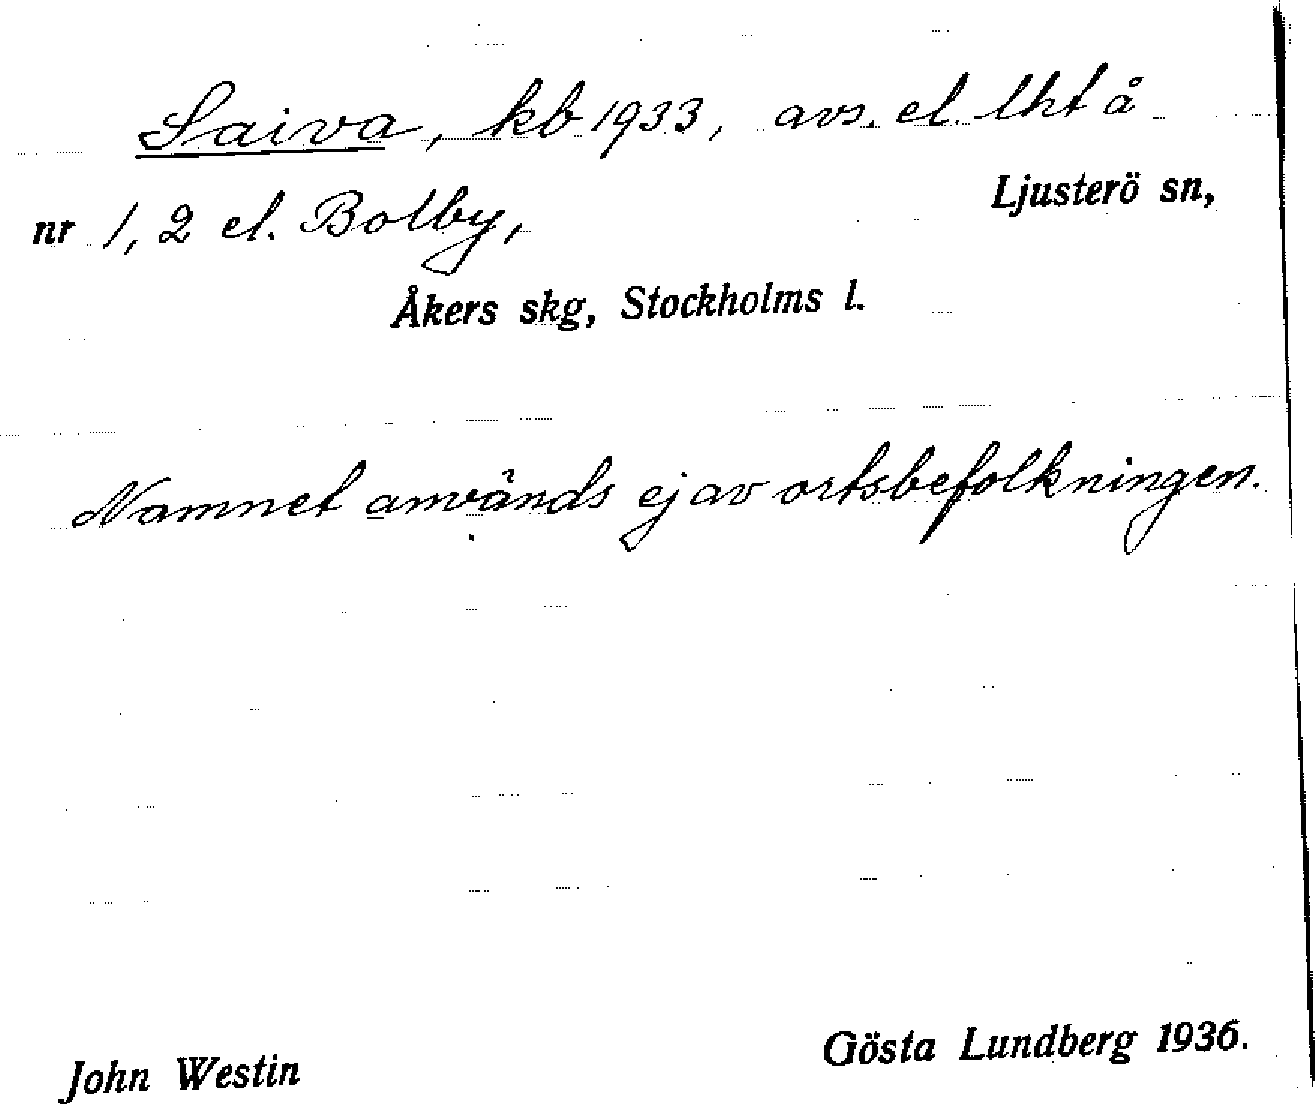 Saiva, kb 1933, avs. el. lht å
nr 1, 2 el. Bolby, Ljusterö sn,
Åkers skg, Stockholms l.
Namnet används ej av ortsbefolkningen.
John Westin Gösta Lundberg 1936.